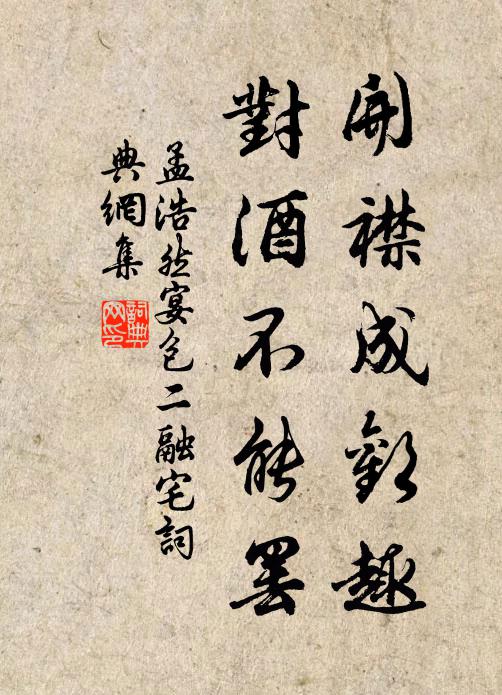 開襟成歡趣
對酒不能罷
孟浩然宴包二融宅詞
典網集
詞典網印